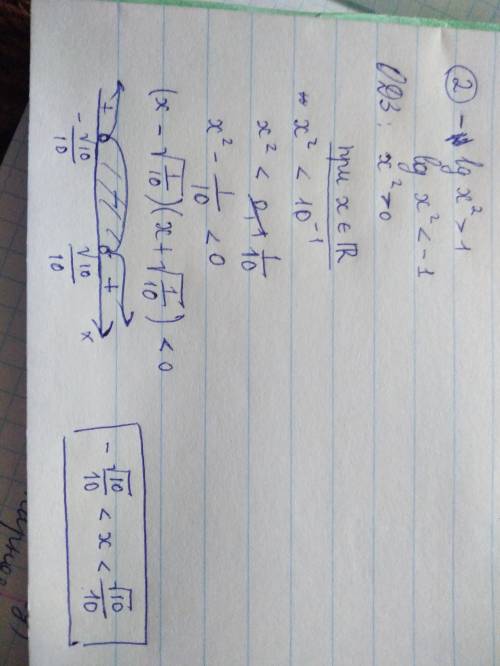 ② - lg x² > 1
lg x² < -1
ОДЗ: x² > 0
при x ∈ ℝ
x² < 10⁻¹
x² < 1/10
x² - 1/10 < 0
(x - √(1/10))(x + √(1/10)) < 0
+ +
-√10/10 √10/10 x
-√10/10 < x < √10/10